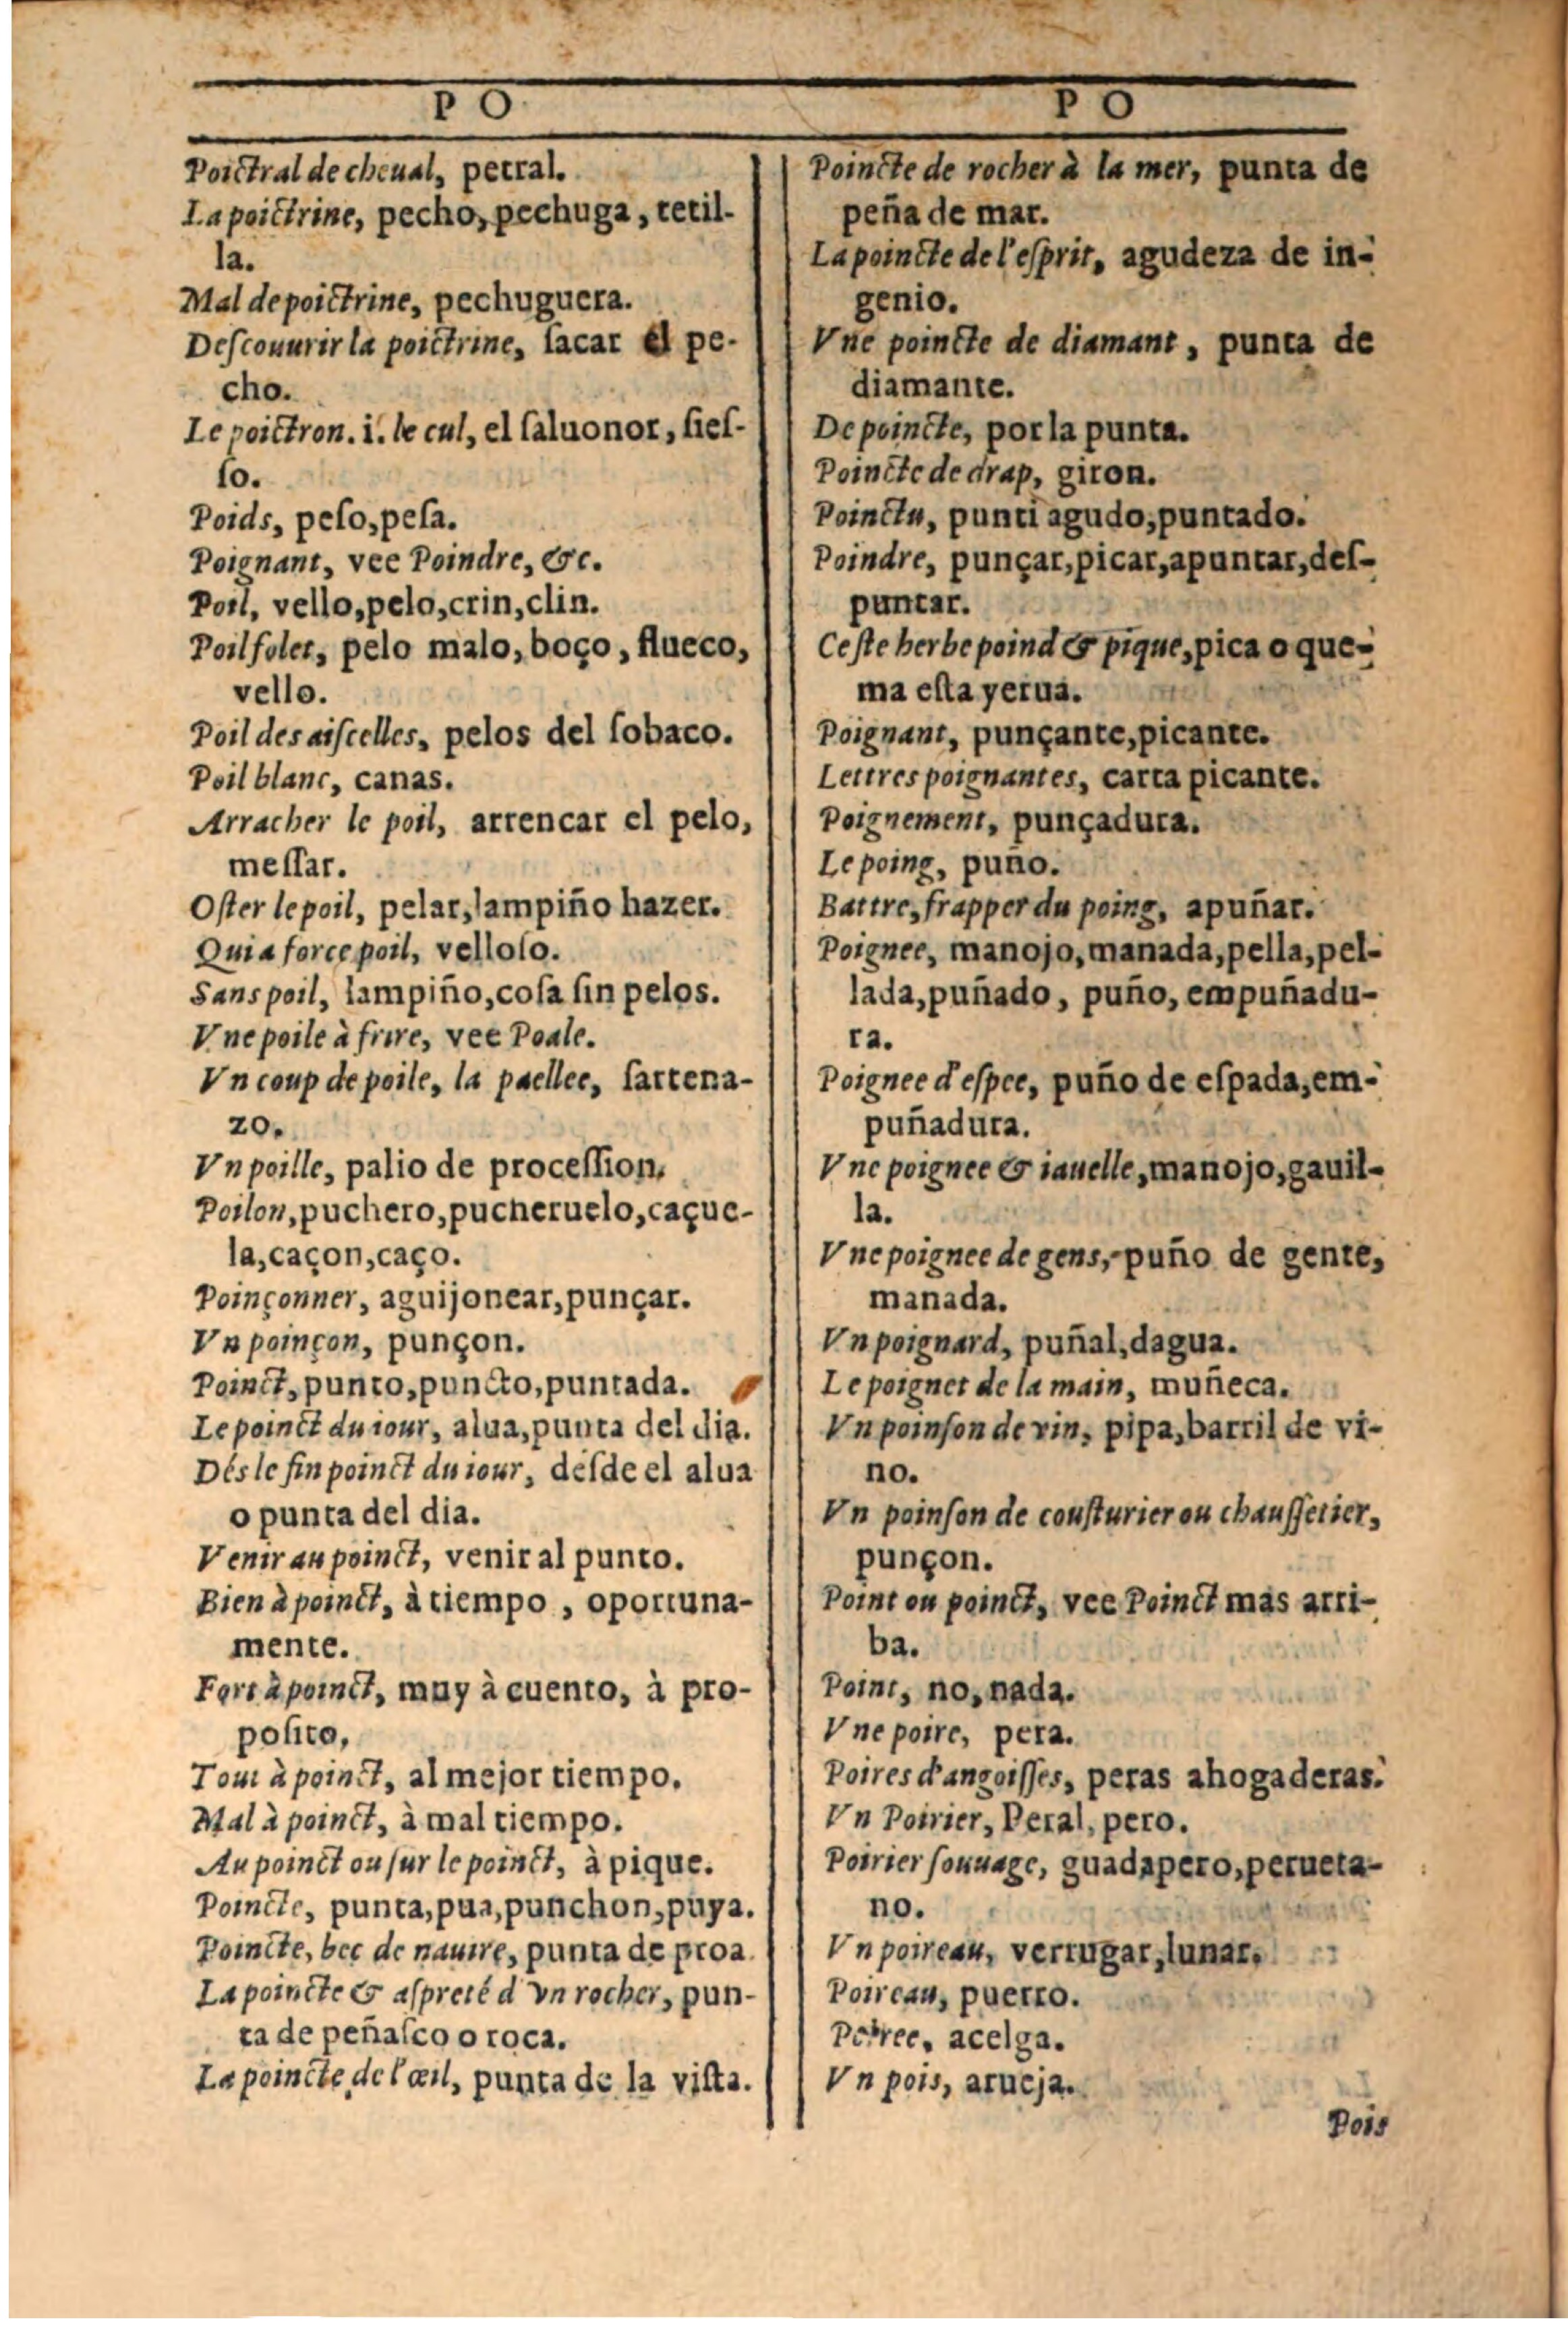 P O
Poictral de cheual, petral.
La poictrine, pecho, pechuga, tetil-
la.
Mal de poictrine, pechuguera.
Descouurir la poictrine, ſacar el pe-
cho.
Le poictron. i. le cul, el ſaluonor, ſieſ-
ſo.
Poids, peſo, peſa.
Poignant, vee Poindre, &c.
Poil, vello, pelo, crin, clin.
Poil folet, pelo malo, boço, flueco,
vello.
Poil des aiſcelles, pelos del ſobaco.
Poil blanc, canas.
Arracher le poil, arrencar el pelo,
meſſar.
Oſter le poil, pelar, lampiño hazer.
Qui a force poil, velloſo.
Sans poil, lampiño, coſa ſin pelos.
Vne poile à frire, vee Poale.
Vn coup de poile, la paellee, ſartena-
zo.
Vn poille, palio de proceſſion.
Poilon, puchero, pucheruelo, caçue-
la, caçon, caço.
Poinçonner, aguijonear, punçar.
Vn poinçon, punçon.
Poinct, punto, puncto, puntada.
Le poinct du iour, alua, punta del dia.
Dés le fin poinct du iour, deſde el alua
o punta del dia.
Venir au poinct, venir al punto.
Bien à poinct, à tiempo, oportuna-
mente.
Fort à poinct, muy à cuento, à pro-
poſito,
Tout à poinct, al mejor tiempo.
Mal à poinct, à mal tiempo.
Au poinct ou ſur le poinct, à pique.
Poincte, punta, pua, punchon, puya.
Poincte, bec de nauire, punta de proa.
La poincte & aſpreté d'vn rocher, pun-
ta de peñaſco o roca.
La poincte de l'œil, punta de la viſta.
P O
Poincte de rocher à la mer, punta de
peña de mar.
La poincte de l'eſprit, agudeza de in-
genio.
Vne poincte de diamant, punta de
diamante.
De poincte, por la punta.
Poincte de drap, giron.
Poinctu, punti agudo, puntado.
Poindre, punçar, picar, apuntar, deſ-
puntar.
Ceſte herbe poind & pique, pica o que-
ma eſta yerua.
Poignant, punçante, picante.
Lettres poignantes, carta picante.
Poignement, punçadura.
Le poing, puño.
Battre, frapper du poing, apuñar.
Poignee, manojo, manada, pella, pel-
lada, puñado, puño, empuñadu-
ra.
Poignee d'eſpee, puño de eſpada, em-
puñadura.
Vne poignee & iauelle, manojo, gauil-
la.
Vne poignee de gens, puño de gente,
manada.
Vn poignard, puñal, dagua.
Le poignet de la main, muñeca.
Vn poinſon de vin, pipa, barril de vi-
no.
Vn poinſon de couſturier ou chauſſetier,
punçon.
Point ou poinct, vee Poinct mas arri-
ba.
Point, no, nada.
Vne poire, pera.
Poires d'angoiſſes, peras ahogaderas.
Vn Poirier, Peral, pero.
Poirier ſouuage, guadapero, perueta-
no.
Vn poireau, verrugar, lunar.
Poireau, puerro.
Poiree, acelga.
Vn pois, arueja.
Pois